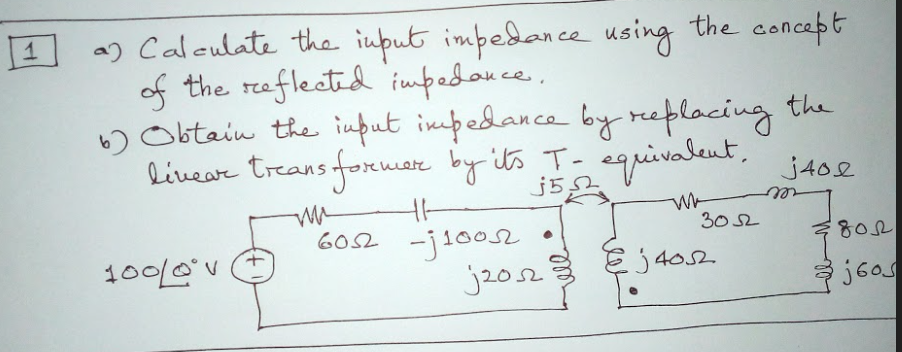 1 a) Calculate the input impedance using the concept
of the reflected impedance.
b) Obtain the input impedance by replacing the
linear transformer by its T-equivalent.
j5Ω j40Ω
60Ω -j100Ω 30Ω 80Ω
100∠0° V j20Ω j40Ω j60Ω